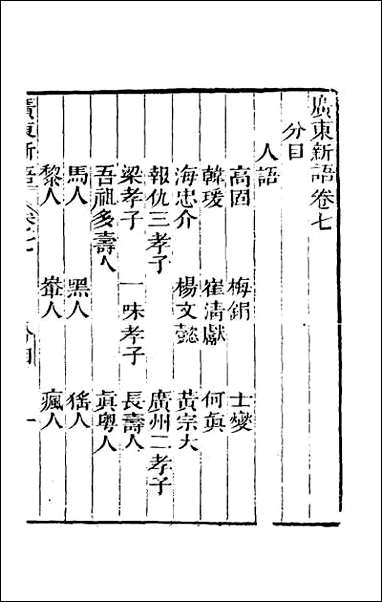 廣東新語卷七
分目
人語
高固 梅鋗 士燮
韓瑗 崔清獻 何眞
海忠介 楊文懿 黃宗大
報仇三孝子 廣州二孝子
梁孝子 一味孝子 長壽人
吾祖多壽人 眞粵人
馬人 黑人 猺人
黎人 輋人 瘋人
廣東新語 卷之七 分目 一